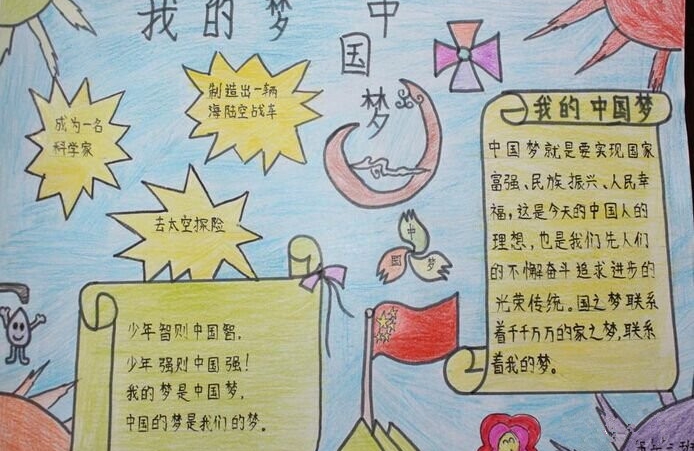 我的梦
中国梦
成为一名
科学家
制造出一辆
海陆空战车
去太空探险
中
国
梦
少年智则中国智,
少年强则中国强!
我的梦是中国梦,
中国的梦是我们的梦。
我的中国梦
中国梦就是要实现国家
富强、民族振兴、人民幸
福,这是今天的中国人的
理想,也是我们先人们
的不懈奋斗追求进步的
光荣传统。国之梦联系
着千千万万的家之梦,联系
着我的梦。